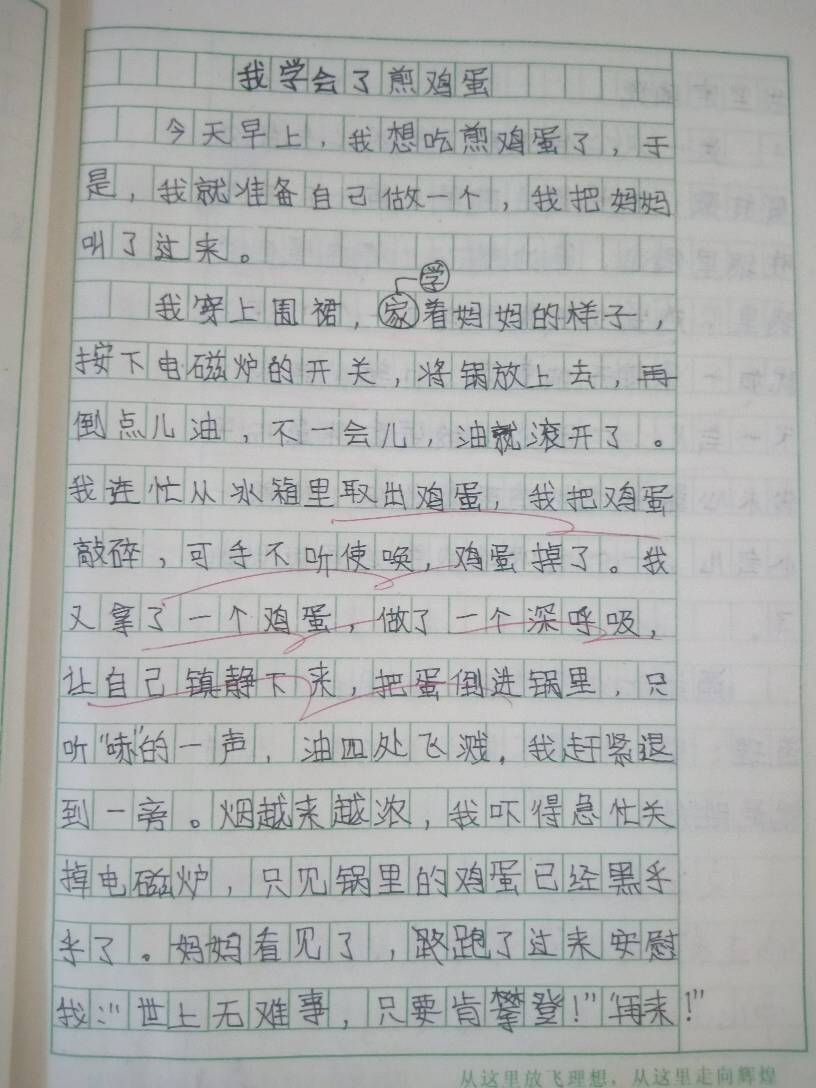 我学会了煎鸡蛋
今天早上，我想吃煎鸡蛋了，于
是，我就准备自己做一个，我把妈妈
叫了过来。
学
我穿上围裙，家着妈妈的样子，
按下电磁炉的开关，将锅放上去，再
倒点儿油，不一会儿，油就滚开了。
我连忙从冰箱里取出鸡蛋，我把鸡蛋
敲碎，可手不听使唤，鸡蛋掉了。我
又拿了一个鸡蛋，做了一个深呼吸，
让自己镇静下来，把蛋倒进锅里，只
听“哧”的一声，油四处飞溅，我赶紧退
到一旁。烟越来越浓，我吓得急忙关
掉电磁炉，只见锅里的鸡蛋已经黑乎
乎了。妈妈看见了，跑了过来安慰
我：“世上无难事，只要肯攀登！”“再来！”
从这里放飞理想，从这里走向辉煌